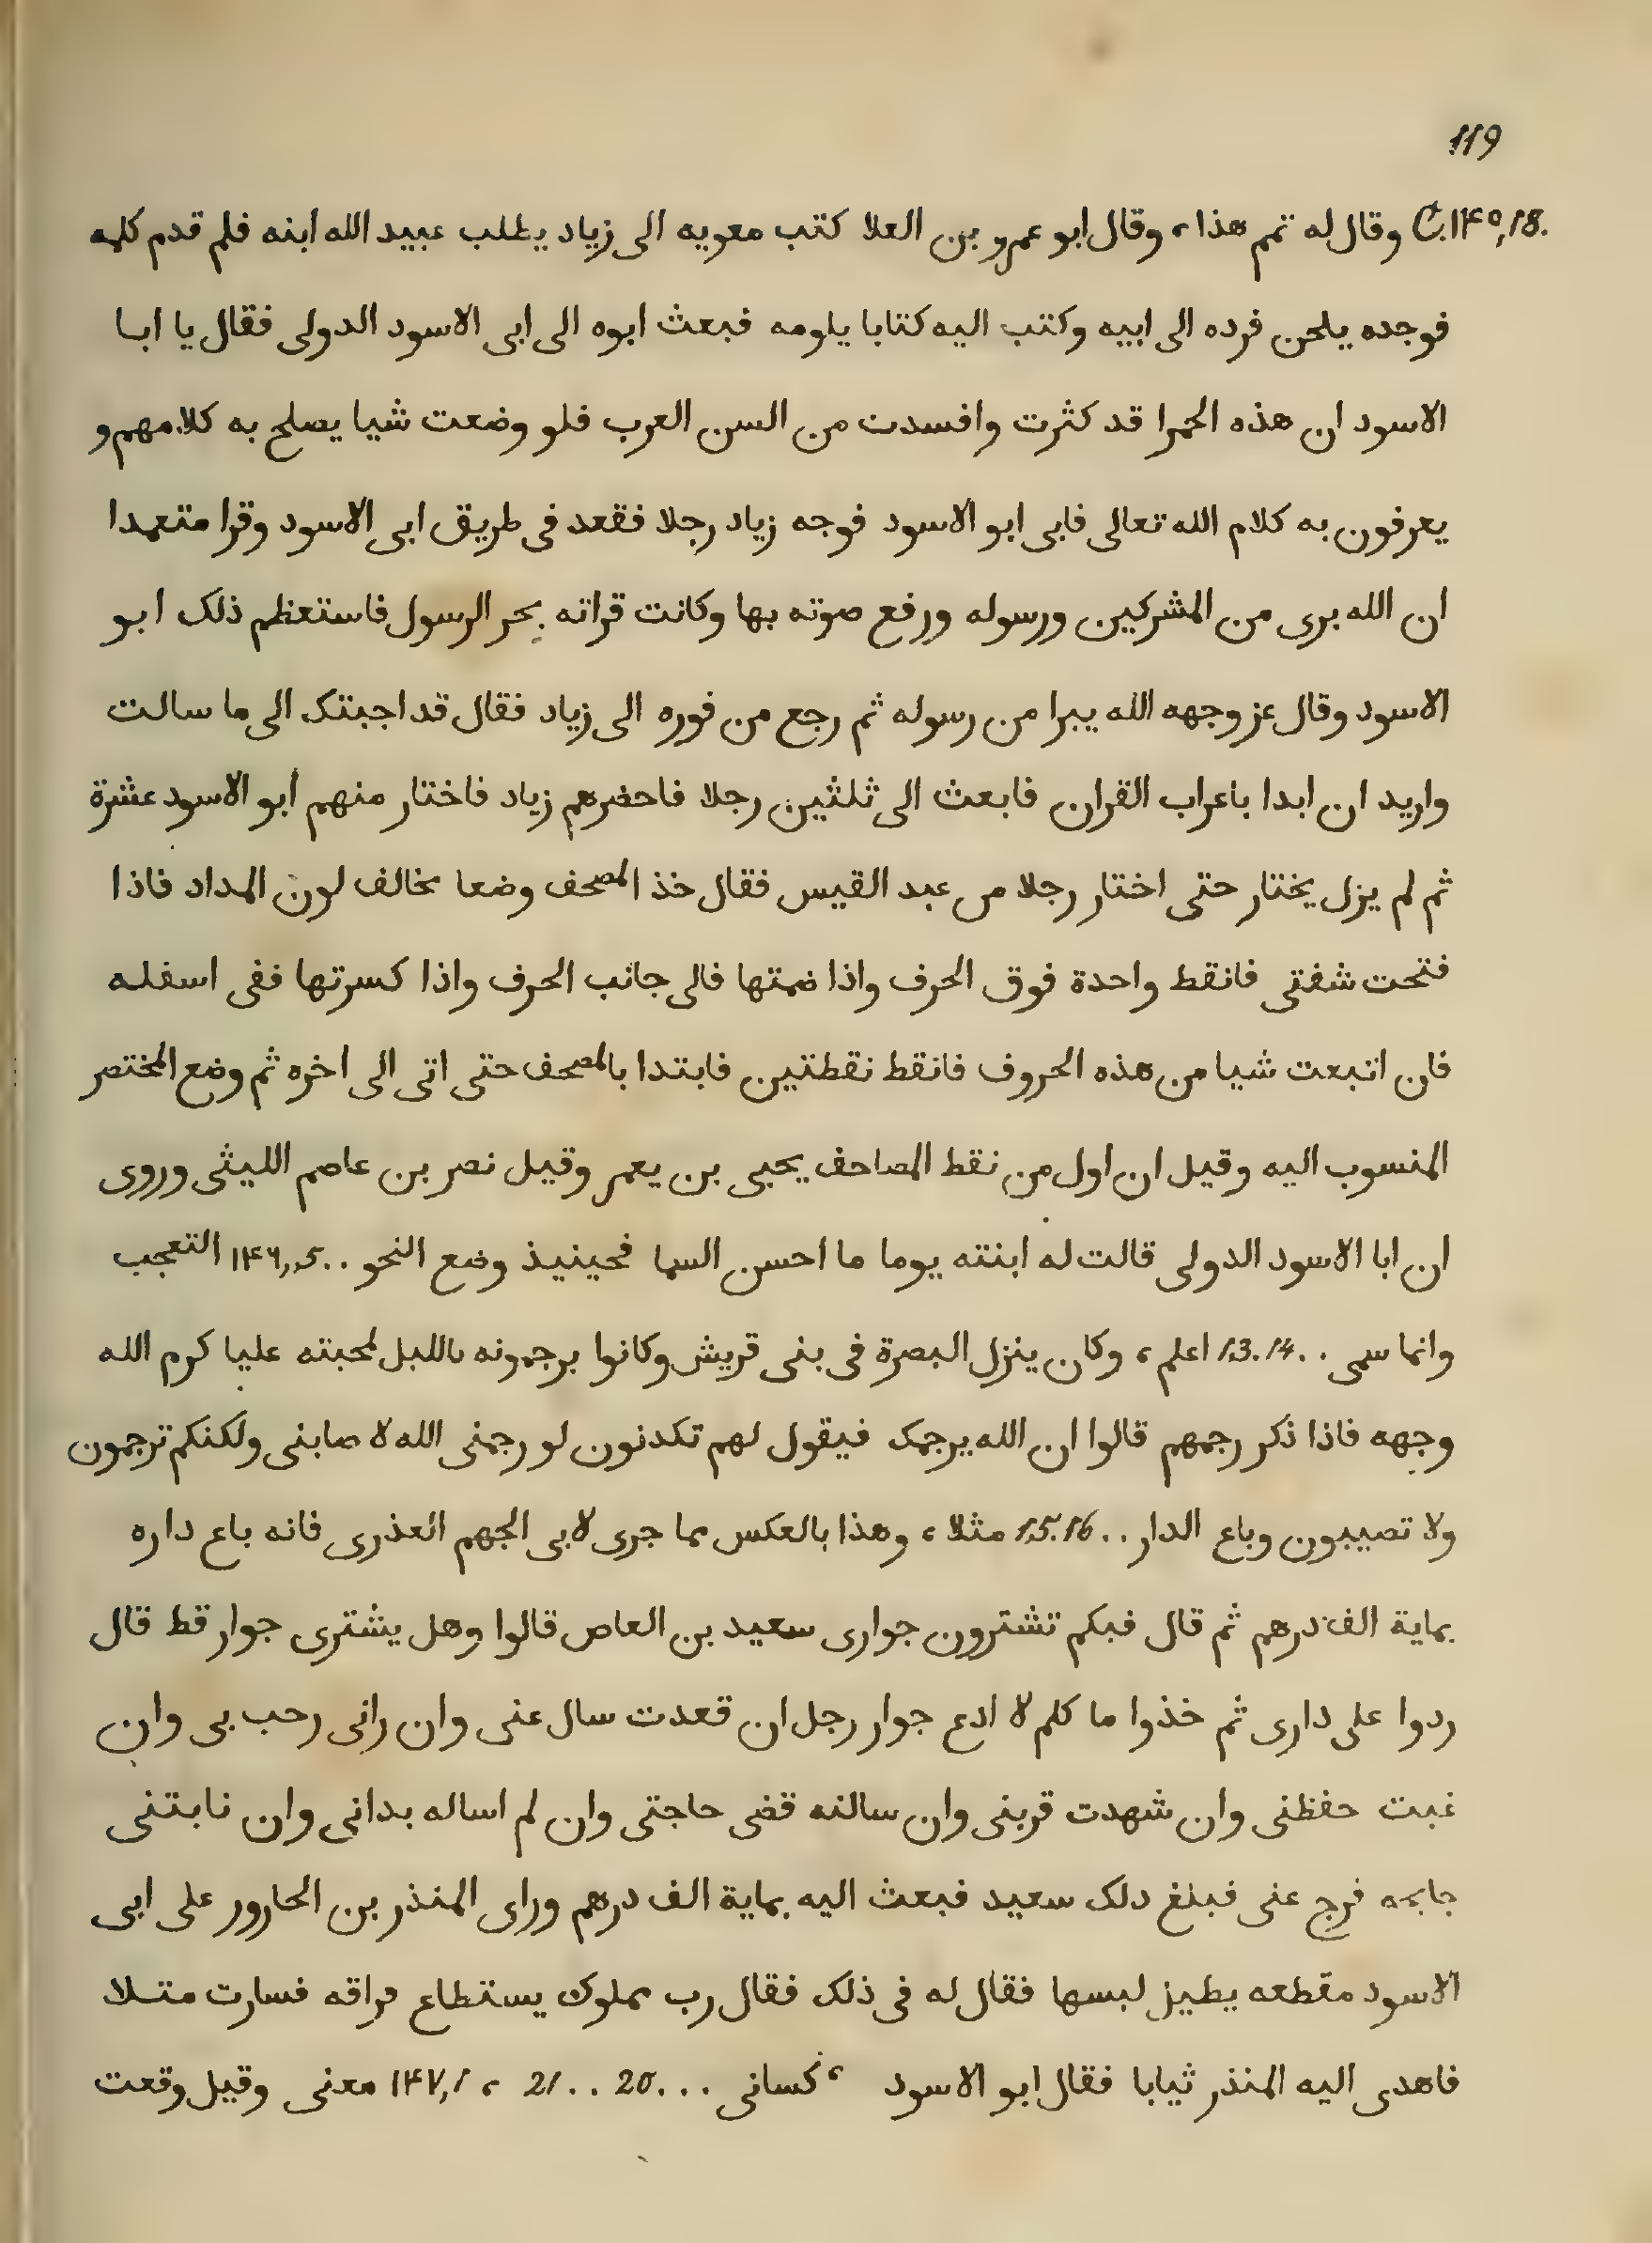 119
C.۱۴۵,18. وقال له تمم هذا، وقال ابو عمرو بن العلا كتب معويه الى زياد يطلب عبيد الله ابنه فلم قدم كلمه
فوجده يلحن فرده الى ابيه وكتب اليه كتابا يلومه فبعث ابوه الى ابى الاسود الدولى فقال يا ابا
الاسود ان هذه الحمرا قد كثرت وافسدت من السن العرب فلو وضعت شيا يصلح به كلامهم و
يعرفون به كلام الله تعالى فابى ابو الاسود فوجه زياد رجلا فقعد فى طريق ابى الاسود وقرا متعمدا
ان الله برى من المشركين ورسوله ورفع صوته بها وكانت قراته بحر الرسول فاستعظم ذلك ابو
الاسود وقال عز وجهه الله يبرا من رسوله ثم رجع من فوره الى زياد فقال قد اجبتك الى ما سالت
واريد ان ابدا باعراب القران فابعث الى ثلثين رجلا فاحضرهم زياد فاختار منهم ابو الاسود عشرة
ثم لم يزل يختار حتى اختار رجلا من عبد القيس فقال خذ المصحف وضعا يخالف لون المداد فاذا
فتحت شفتى فانقط واحدة فوق الحرف واذا ضمتها فالى جانب الحرف واذا كسرتها ففى اسفله
فان اتبعت شيا من هذه الحروف فانقط نقطتين فابتدا بالمصحف حتى اتى الى اخره ثم وضع المختصر
المنسوب اليه وقيل ان اول من نقط المصاحف يحيى بن يعمر وقيل نصر بن عاصم الليثى وروى
ان ابا الاسود الدولى قالت له ابنته يوما ما احسن السما فحينيذ وضع النحو ..۱۴۶,5 التعجب
وانما سمى ..13.14 اعلم، وكان ينزل البصرة فى بنى قريش وكانوا يرجمونه بالليل لمحبته عليا كرم الله
وجهه فاذا ذكر رجمهم قالوا ان الله يرجمك فيقول لهم تكدنون لو رجمنى الله لا صابنى ولكنكم ترجمون
ولا تصيبون وباع الدار ..15.16 مثلا، وهذا بالعكس مما جرى لابى الجهم العذرى فانه باع داره
بماية الف درهم ثم قال فبكم تشترون جوارى سعيد بن العاص قالوا وهل يشترى جوار قط قال
ردوا على دارى ثم خذوا ما كلم لا ادع جوار رجل ان قعدت سال عنى وان رانى رحب بى وان
غبت حفظنى وان شهدت قربنى وان سالته قضى حاجتى وان لم اساله بدانى وان نابتنى
جابحه فرج عنى فبلغ دلك سعيد فبعث اليه بماية الف درهم وراى المنذر بن الحارور على ابى
الاسود مقطعه يطيز لبسها فقال له فى ذلك فقال رب مملوك يستطاع فراقه فسارت متلا
فاهدى اليه المنذر ثيابا فقال ابو الاسود ، كسانى ...20..21 ، ۱۴۷,1 معنى وقيل وقعت